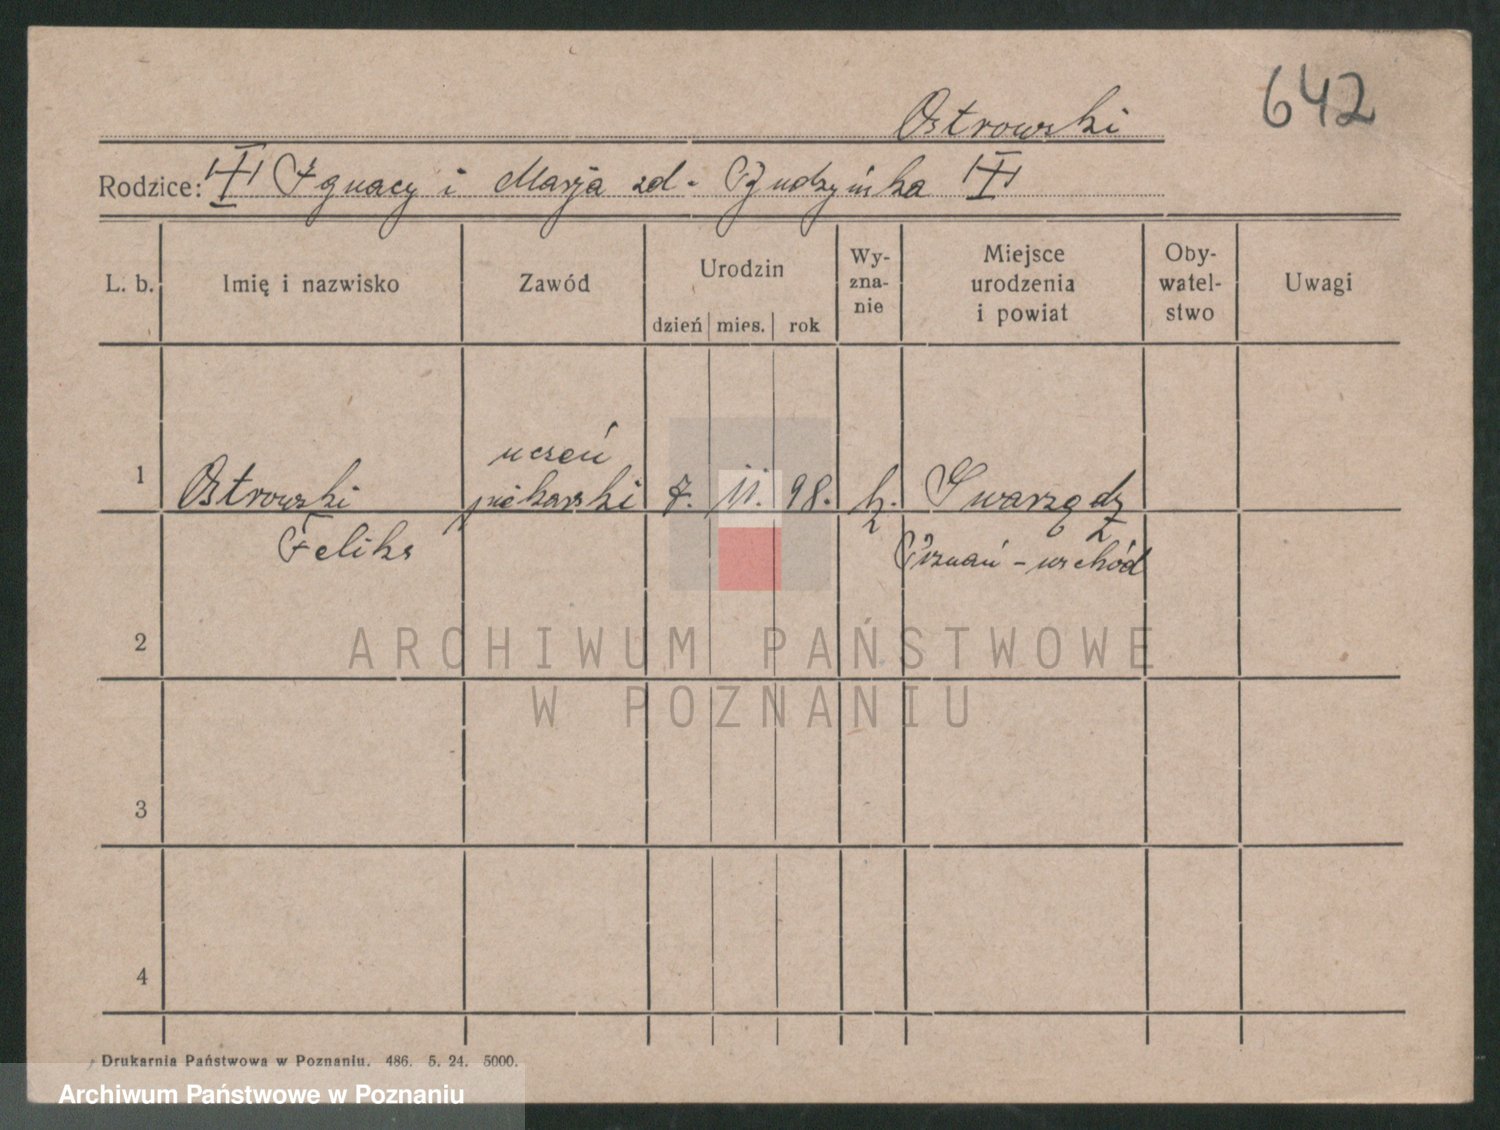 642
Ostrowski
Rodzice: Ignacy i Marja zd. Budzyńska
L. b. Imię i nazwisko Zawód Urodzin dzień mies. rok Wy-zna-nie Miejsce urodzenia i powiat Oby-watel-stwo Uwagi
uczeń
1 Ostrowski piekarski 7. 11. 98. k. Swarzędz
Feliks Poznań - wschód
2
ARCHIWUM PAŃSTWOWE
W POZNANIU
3
4
Drukarnia Państwowa w Poznaniu. 486. 5. 24. 5000.
Archiwum Państwowe w Poznaniu